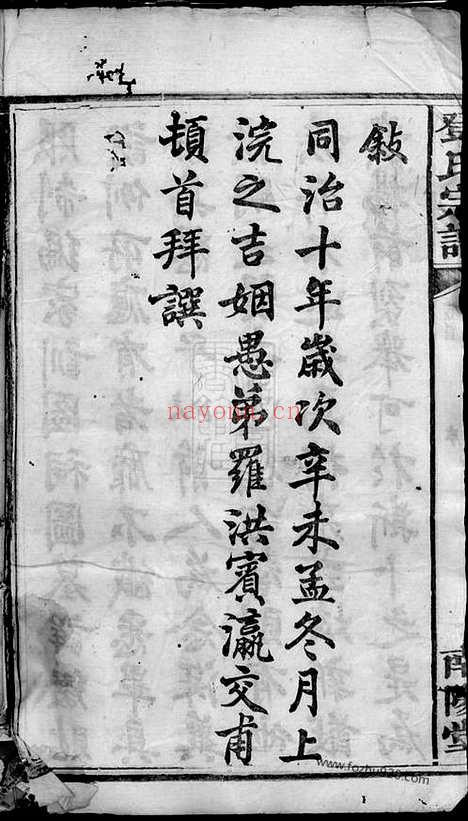 鄧氏宗譜
敍
同治十年歲次辛未孟冬月上
浣之吉姻愚弟羅洪賓瀛交甫
頓首拜譔
南陽堂
nayona.cn
www.fozhu920.com